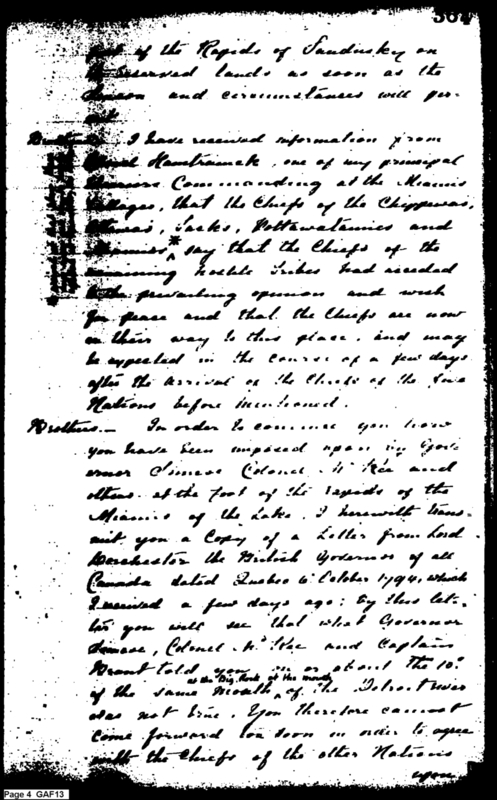 364
of the Rapids of Sandusky on
reserved lands as soon as the
and circumstances will per-
mit
Brothers I have received information from
Hamtramak, one of my principal
Commanding at the Miamis
Villages, that the Chiefs of the Chippewas,
Sacks, Pottawatamies and
Miamies * say that the Chiefs of the
remaining hostile Tribes had acceded
to the prevailing opinion and wish
for peace and that the Chiefs are now
on their way to this place, and may
be expected in the course of a few days
after the arrival of the Chiefs of the
Nations before mentioned.
Brothers.— In order to convince you how
you have been imposed upon by Gov-
ernor Simcoe Colonel McKee and
others at the foot of the rapids of the
Miamis of the Lake, I herewith trans-
mit you a Copy of a Letter from Lord
Dorchester the British Governor of all
Canada dated Quebec 6 October 1794, which
I received a few days ago; by this let-
ter you will see that what Governor
Simcoe, Colonel McKee and Captain
Brant told you on or about the 10
at the Big Rock at the mouth
of the same month of the Detroit river
was not true. You therefore cannot
come forward too soon in order to agree
with the Chiefs of the other Nations
upon
Page 4 GAF13